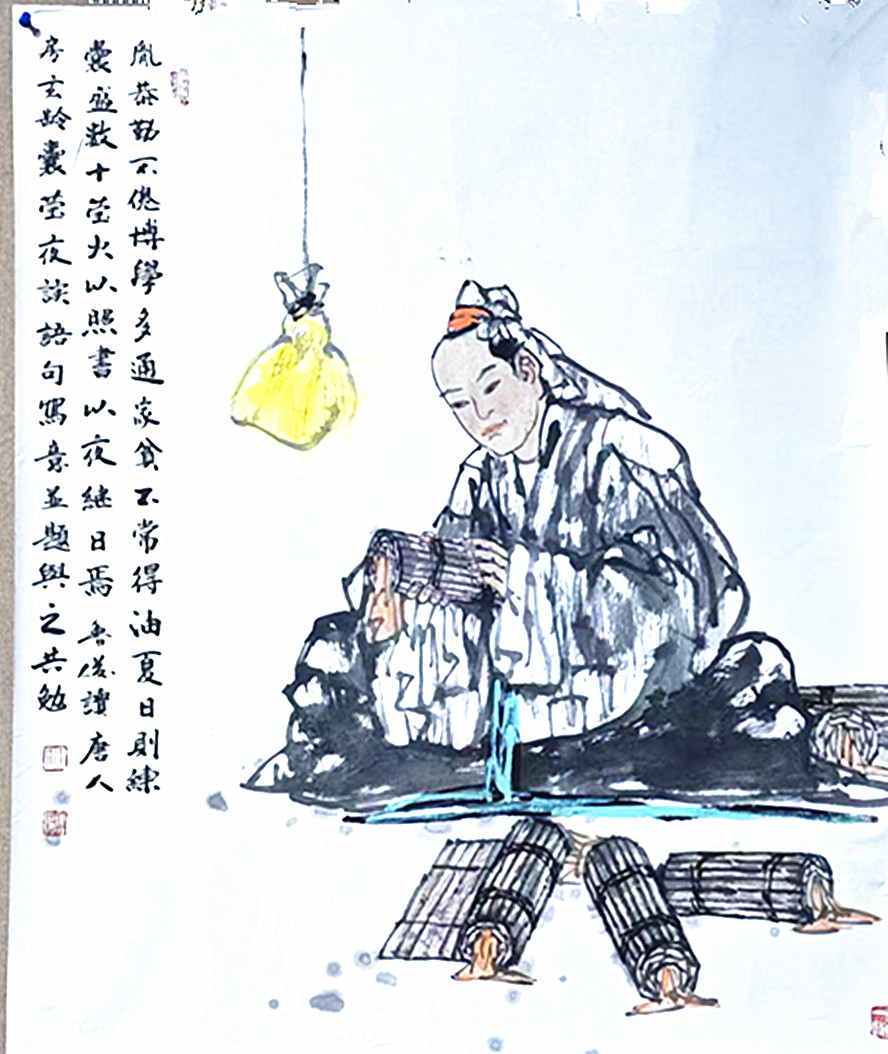 胤恭勤不倦博學多通家貧不常得油夏日則練
囊盛数十萤火以照書以夜继日焉 讀唐人
房玄龄囊萤夜談語句寫意並題與之共勉